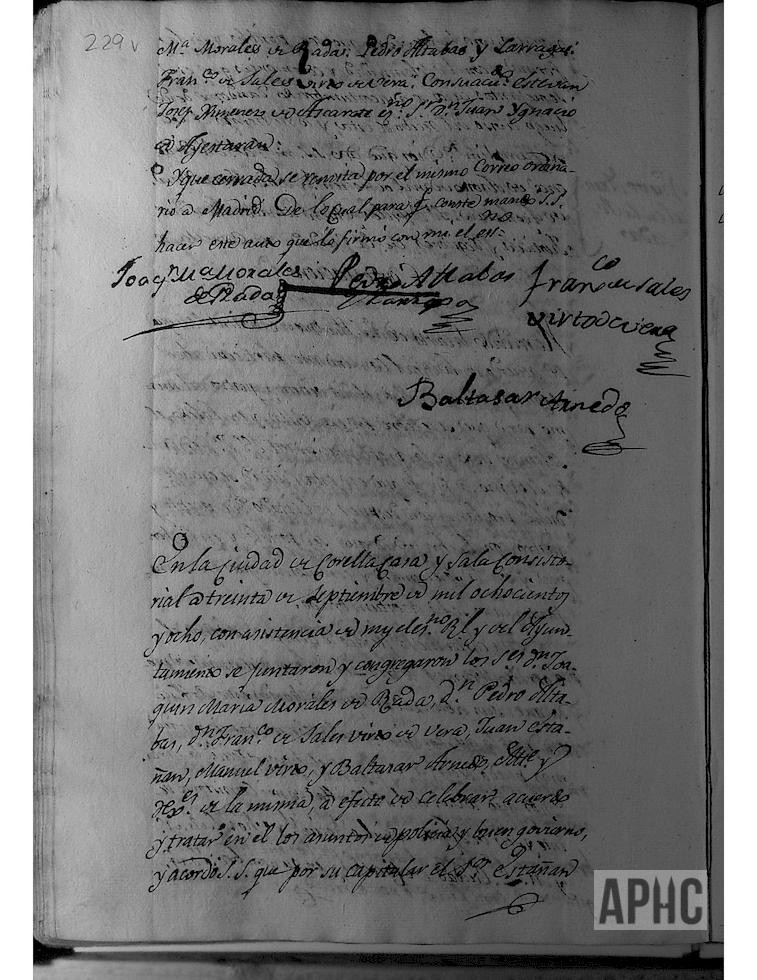 229 v
Mª Morales de Rada. Pedro Altabas y Larraga.
Franco de Sales virto de vera. Con su acdo. Estevan
Josef Ximenez de Ascarate esno. Sr. Dn. Juan Ygnacio
de Ayestaran.
Y que cerrada se remita por el mismo Correo ordina-
rio a Madrid. De lo qual para q. conste mando S.S.
hacer este auto que lo firmó con mi el esno.
Joaqn Ma Morales
de Rada
Pedro Altabas
y Larraga
franco de sales
virto de vera
Baltasar Arnedo
En la Ciudad de Corella Casa y Sala Consisto-
rial a treinta de Septiembre de mil ochocientos
y ocho, con asistencia de my el esno Rl. y del Ayun-
tamiento se juntaron y congregaron los Ses dn Joa-
quin Maria Morales de Rada, dn Pedro Alta-
bas, dn Franco de Sales virto de vera, Juan esta-
ñan, Manuel virto, y Baltasar Arnedo, Alte y
de la misma, a efecto de celebrar acuerdo
y tratar en el los asuntos de policia y buen govierno,
y acordó S.S. que por su capitular el Sor estañan
APHC